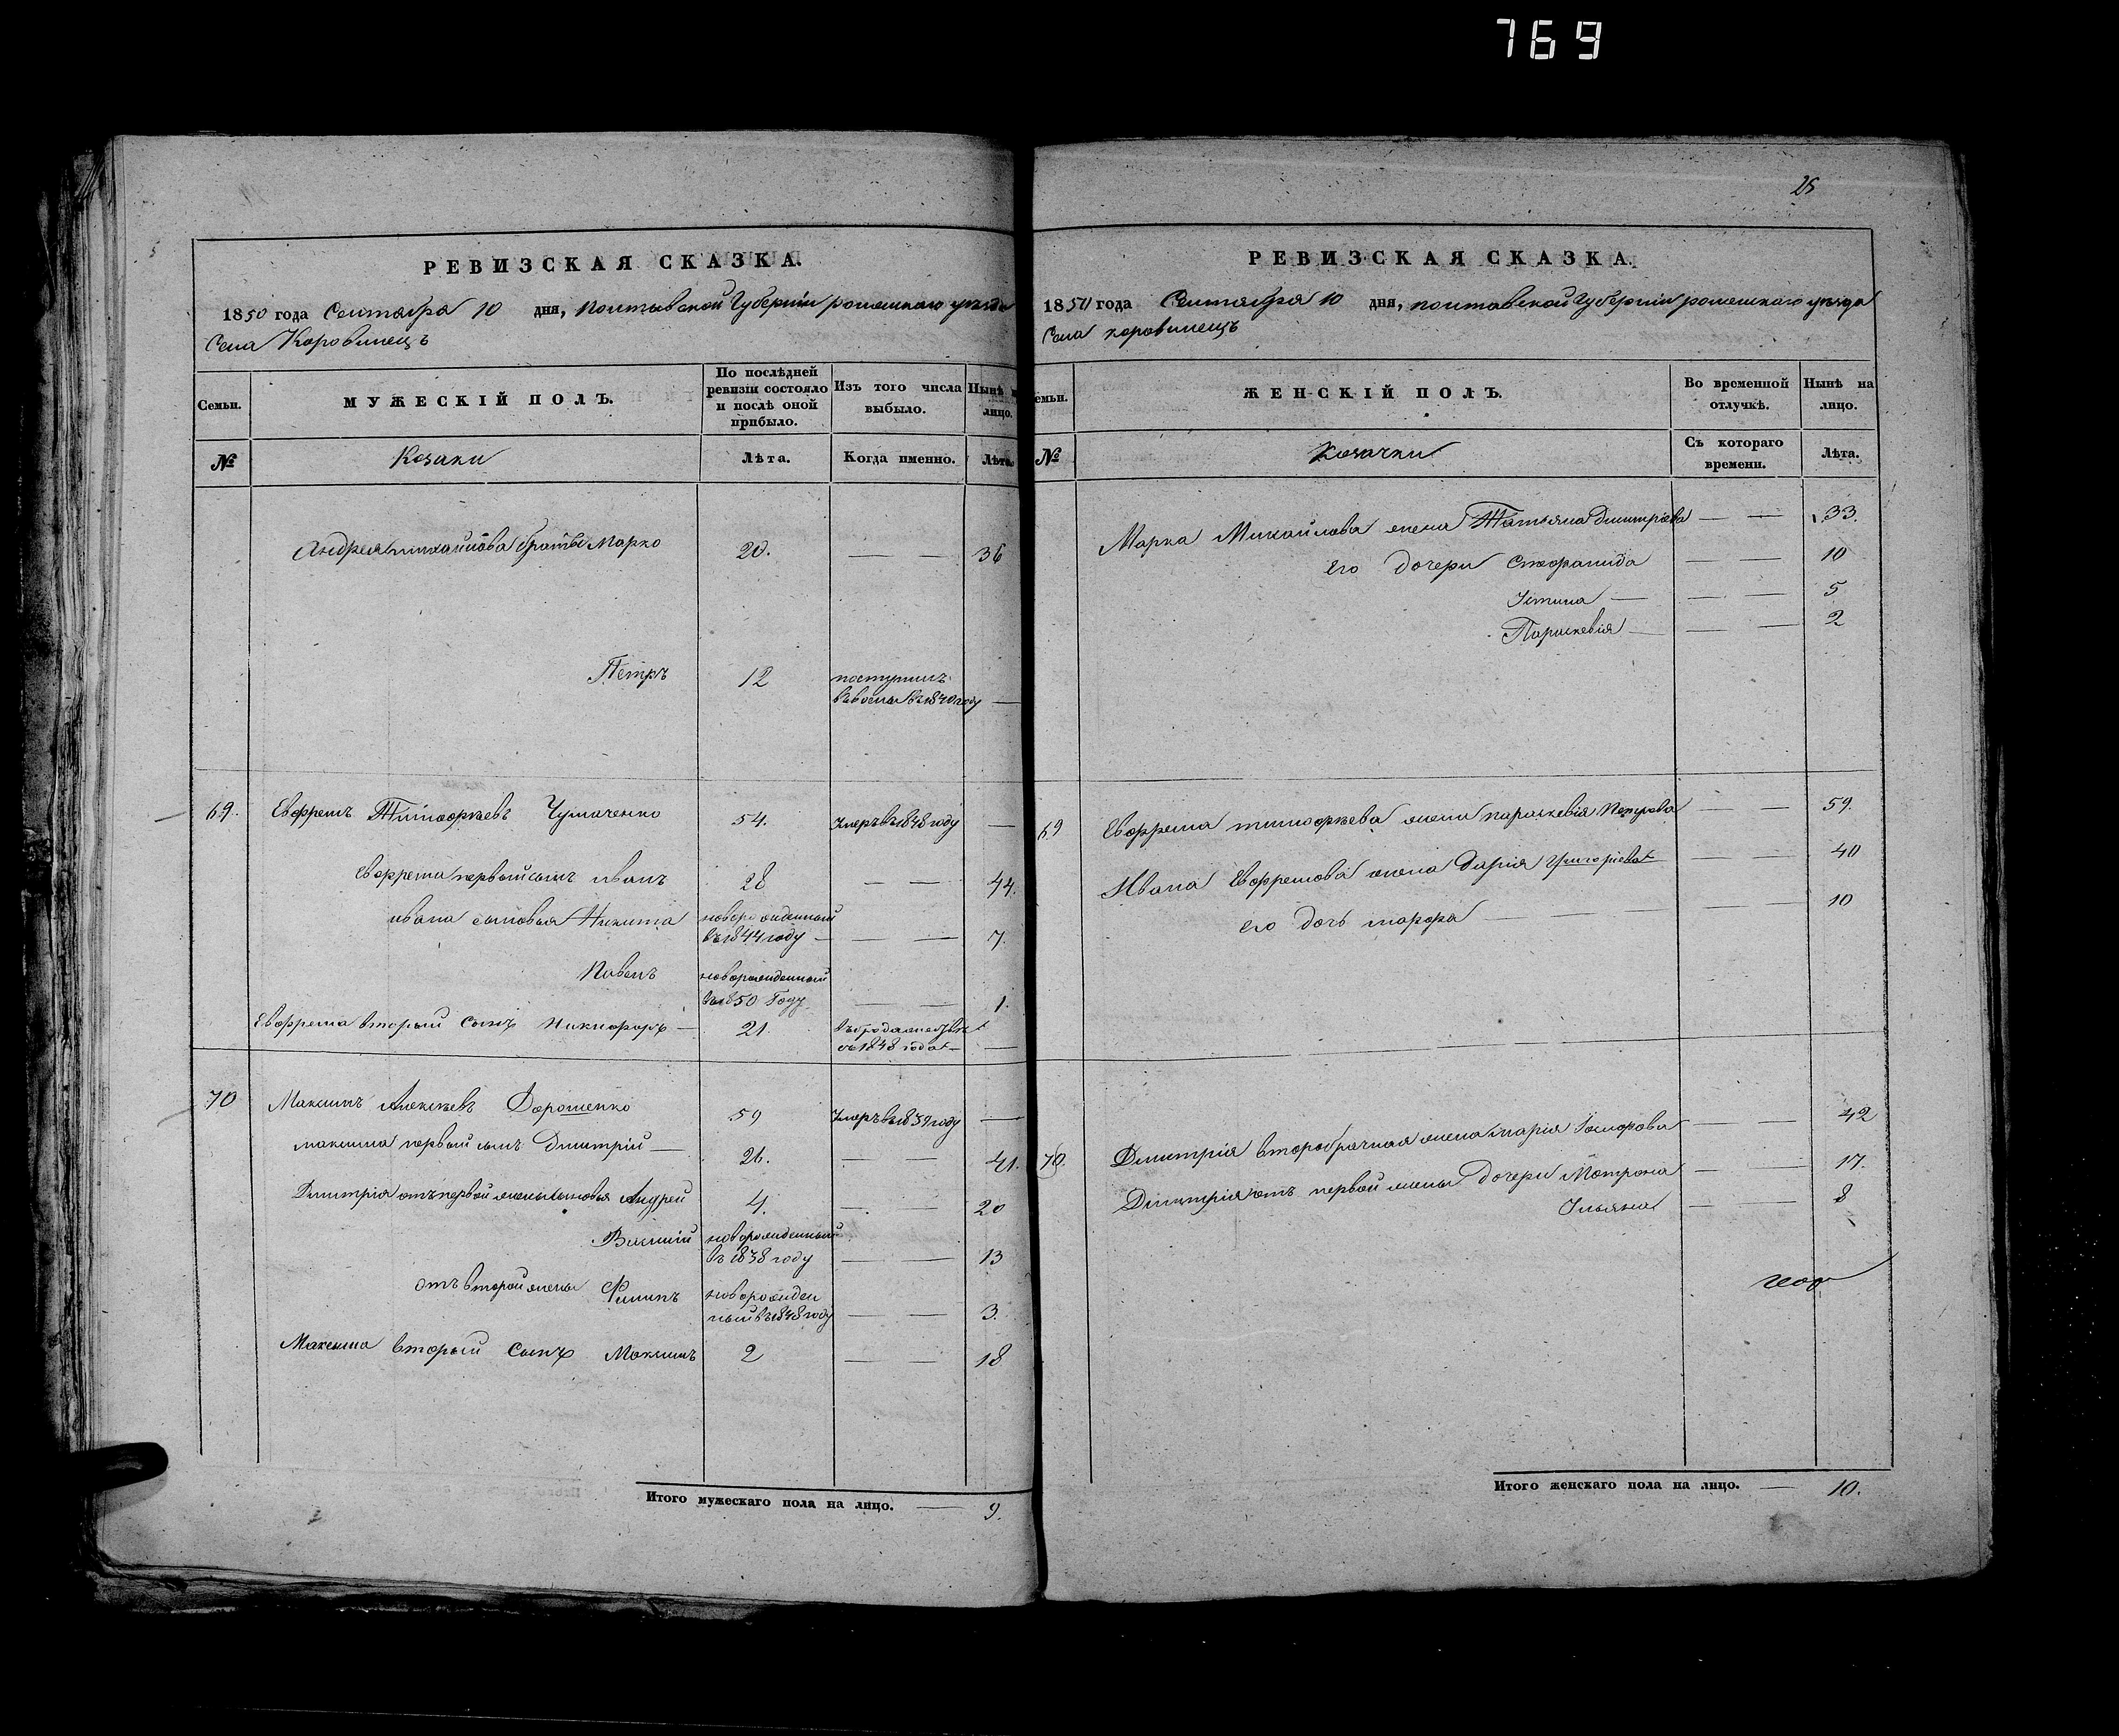 769
РЕВИЗСКАЯ СКАЗКА.
1850 года Сентября 10 дня, полтавской Губерніи роменскаго уезда
Села Коровинецъ
Семьи.
МУЖЕСКІЙ ПОЛЪ.
По послѣдней ревизіи состояло и послѣ оной прибыло.
Изъ того числа выбыло.
Нынѣ на лицо.
№
Козаки
Лѣта.
Когда именно.
Лѣта.
Андрея михайлова братья Марко 20. — — 36
Петръ 12 поступилъ
въ 1840 году —
69. Евфремъ Тимофѣевъ Чумаченко 54. Умеръ въ 1848 году —
Евфрема первый сынъ иванъ 28 — — 44.
ивана сыновья Никита новорожденный
въ 1844 году — — — 7.
Павелъ новорожденный
въ 1850 Году — — 1.
Евфрема вторый Сынъ Никифоръ — 21.
съ 1848 года — —
70 Максимъ Алексѣевъ Дорошенко 59 Умеръ въ 1839 году —
максима первый сынъ Дмитрій — 26. — — 41.
Дмитрія отъ первой жены сыновья Андрей 4. — — 20
Василій новорожденный
въ 1838 году — — 13
отъ второй жены Филипъ новорожден
ный въ 1848 году — — 3.
Максима вторый Сынъ Максимъ 2 — — 18
Итого мужескаго пола на лицо. — 9.
25
РЕВИЗСКАЯ СКАЗКА.
1850 года Сентября 10 дня, полтавской Губерніи роменскаго уезда
Села коровинецъ
Семьи.
ЖЕНСКІЙ ПОЛЪ.
Во временной отлучкѣ.
Нынѣ на лицо.
№
Козачки
Съ котораго времени.
Лѣта.
Марка Михайлова жена Татьяна Дмитріева — — 33.
Его Дочери Стефанида — — 10
Устина — — — 5
Параскевія — — — 2
69 Евфрема тимофѣева жена параскевія Петрова — — 59.
Ивана Евфремова жена Дарія Григоріева — — 40
его дочь марфа — — — 10
70. Дмитрія второбрачная жена марія — — 42
Дмитрія отъ первой жены Дочери Мотрона — — 17.
Ульяна — — 8
Итого женскаго пола на лицо. — 10.